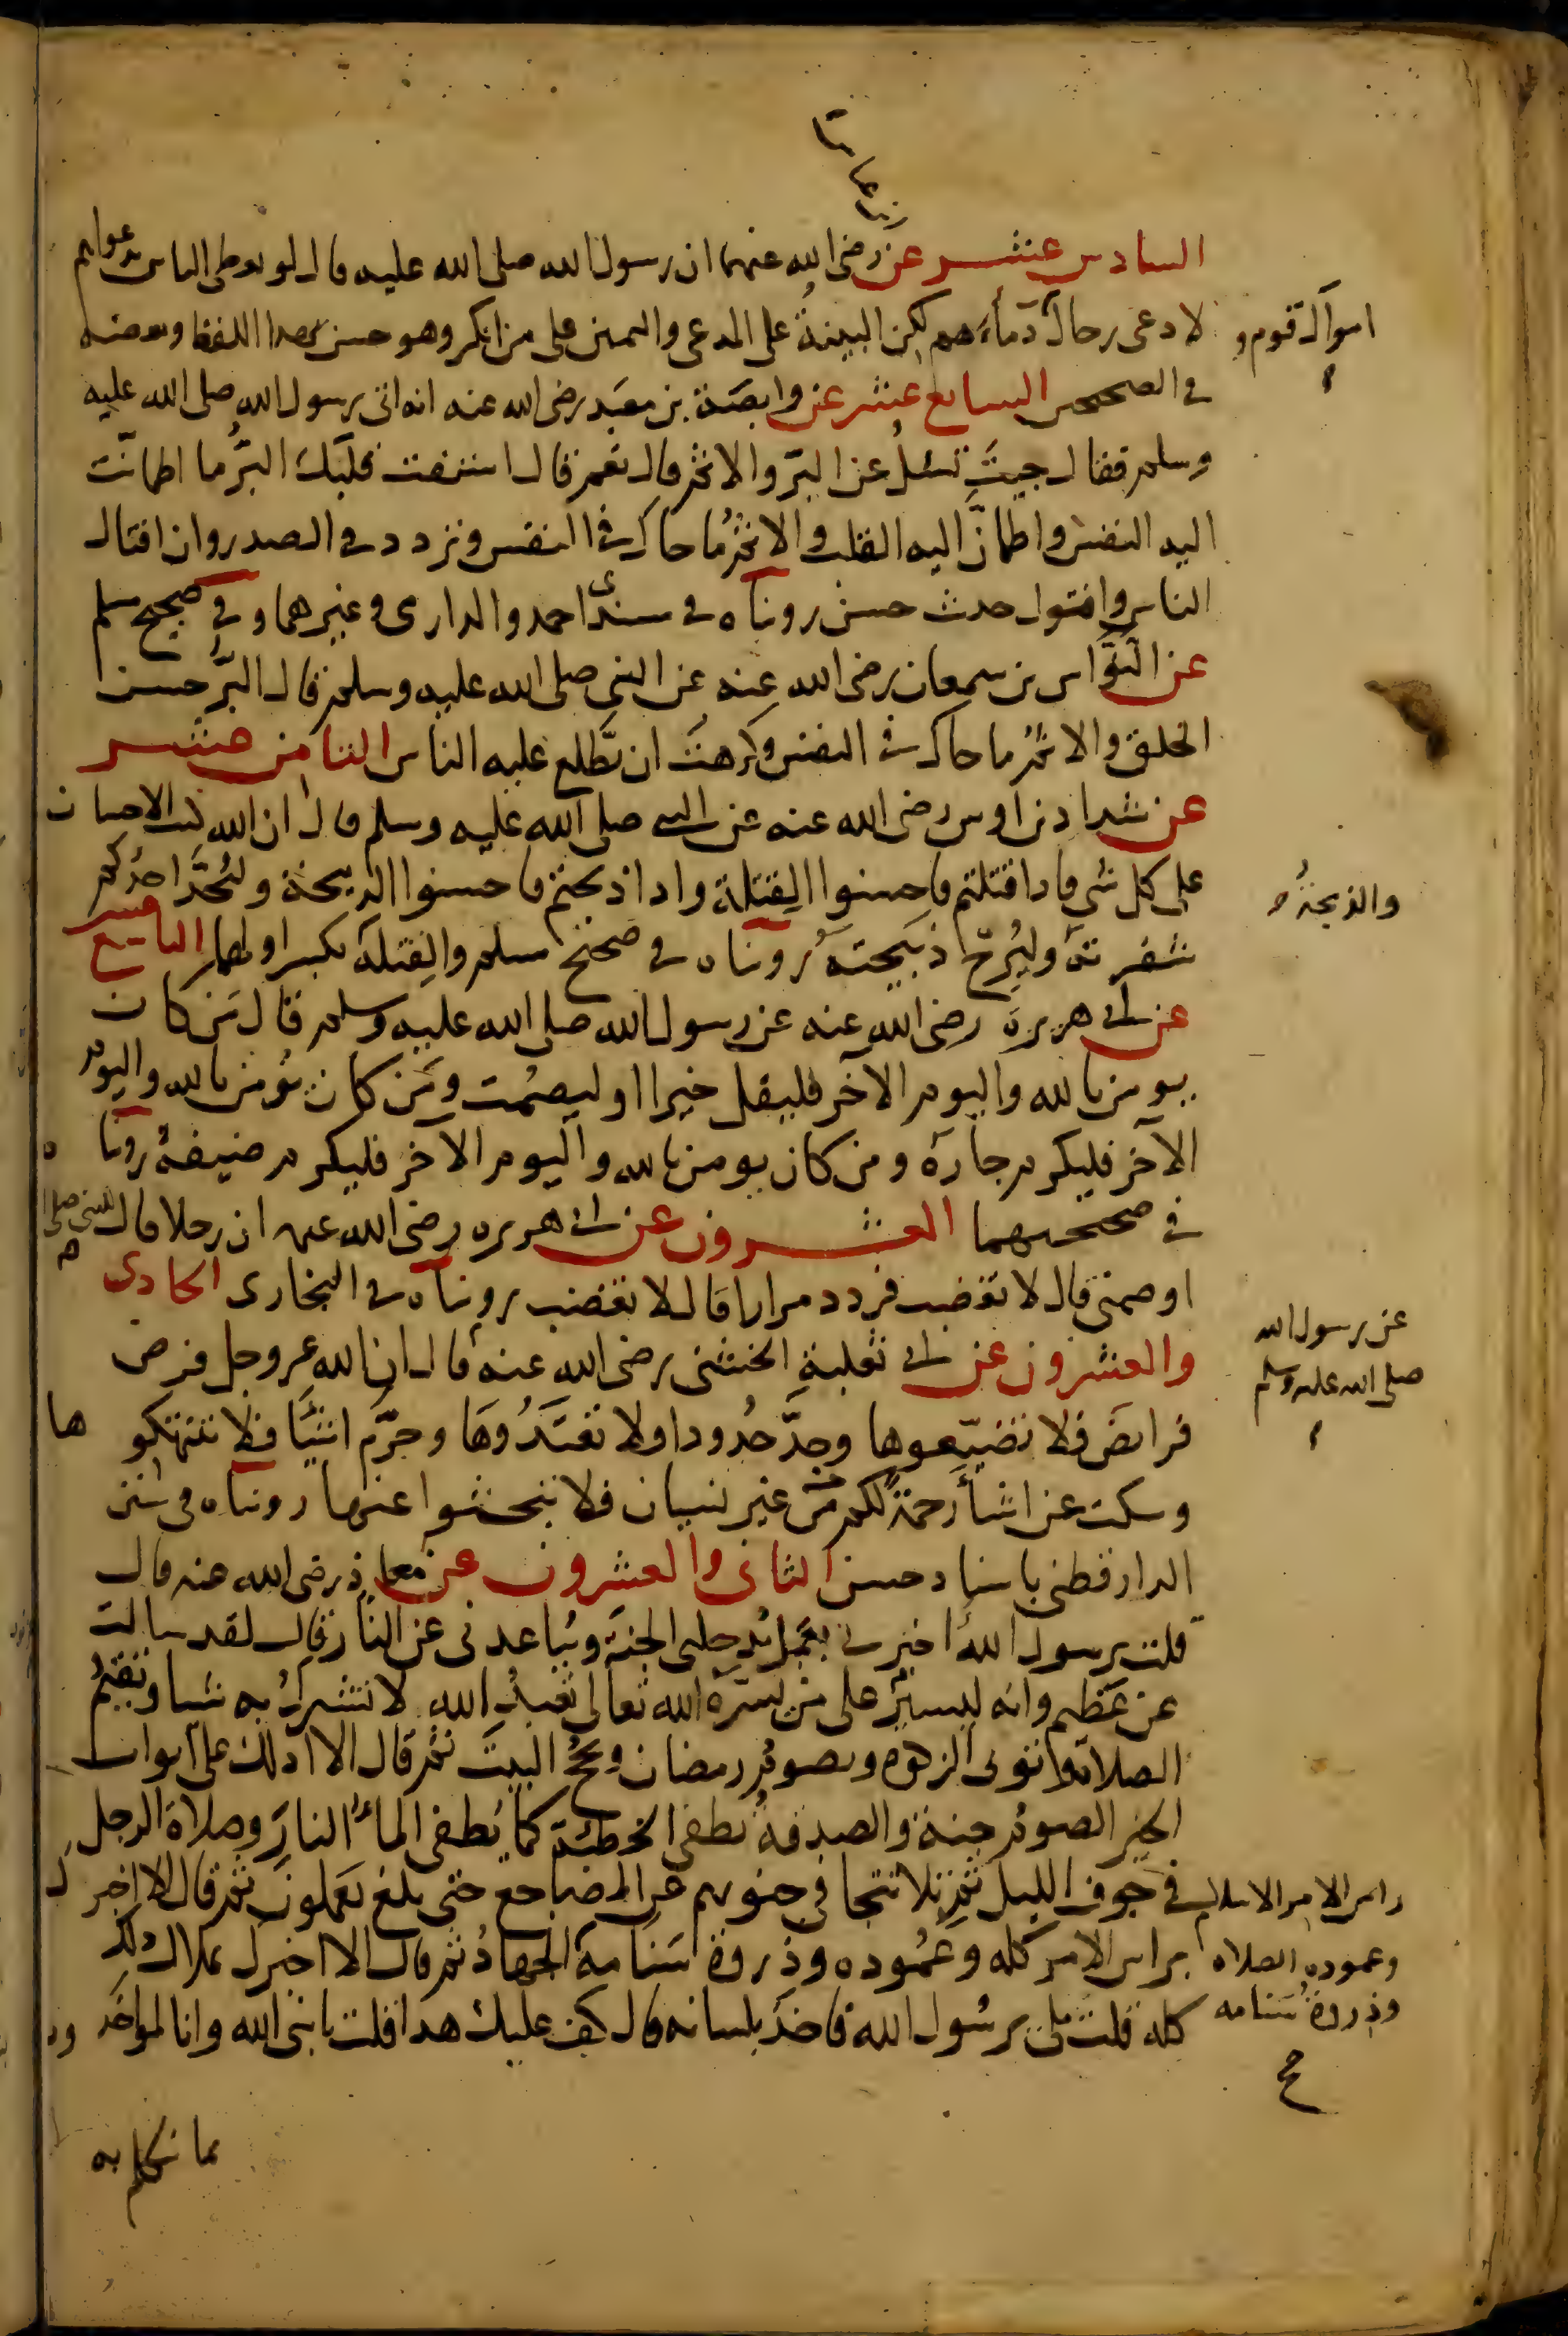 ابن عباس
السادس عشر عن رضى الله عنهما ان رسول الله صلى الله عليه قال لو يعطى الناس بدعواهم
لادعى رجال دماءهم لكن البينةُ على المدعى واليمين على من انكر وهو حسن بهذا اللفظ وبعضه
اموال قوم و
في الصحيحين السابع عشر عن وابصَة بن معبَد رضى الله عنه انه اتى رسول الله صلى الله عليه
وسلم فقال جيتَ تسئلُ عن البرّ والاثم قال نعم قال استفت قلبَك البرُّ ما اطمانّت
اليه النفس واطمانَّ اليه القلب والاثمُ ما حاك في النفس وتردد في الصدر وان افتاك
الناس وافتوك حديث حسن رويناه في مسندى احمد والدارمى وغيرهما وفي صحيح مسلم
عن النوَّاس بن سمعان رضى الله عنه عن النبي صلى الله عليه وسلم قال البرُّ حسن
الخلق والاثمُ ما حاك في النفس وكرهتَ ان يَّطلع عليه الناس الثامن عشر
عن شداد بن اوس رضى الله عنه عن النبي صلى الله عليه وسلم قال ان الله كتب الاحسان
على كل شي فاذا قتلتم فاحسنوا القِتلة واذا ذبحتم فاحسنوا الذبحة وليُحدَّ احدُكم
والذبحةُ
شفرته وليُرِحْ ذبَيحتَه رويناه في صحيح مسلم والقِتلة بكسر اولها التاسع عشر
عن ابى هريرة رضى الله عنه عن رسول الله صلى الله عليه وسلم قال مَن كان
يومن بالله واليوم الآخر فليقل خيرا او ليصمُت ومَن كان يُومن بالله واليوم
الآخر فليكرم جارَه ومن كان يومن بالله واليوم الآخر فليكرم ضيفهُ رويناه
في صحيحيهما العشرون عن ابى هريره رضى الله عنه ان رجلا قال للنبي صلى
اوصني قال لا تغضب فردد مرارا قال لا تغضب رويناه في البخارى الحادى
والعشرون عن ابى ثعلبةِ الخشنى رضى الله عنه قال ان الله عز وجل فرض
عن رسول الله
صلى الله عليه وسلم
فرائضَ فلا تضيّعوها وحدَّ حُدودا ولا تعتَدُوهَا وحرَّم اشيَّا فلا تنتهكوها
وسكت عن اشيأ رحمةً لكم من غير نسيان فلا تبحثوا عنها رويناه في سنن
الدارقطنى باسناد حسن الثانى والعشرون عن معاذ رضى الله عنه قال
قلت يرسول الله اخبرني بعَمَلٍ يُدخِلني الجنةَ ويُباعدنى عن النَّار قال لقد سالت
عن عَظيم وانه ليسيرٌ على من يسّرهُ الله تعالى تعبدُ الله لا تشركُ به شيا وتقيمُ
الصلاة وتوتى الزكوة وتصومُ رمضان وتحُجُّ البيتَ ثم قال الا ادلك على ابواب
الخير الصومُ جنة والصدقةُ تطفى الخطيئة كما يُطفى المأُ النارَ وصلاة الرجل
في جوف الليل ثم تلا تتجافي جنوبهم عن المضاجع حتى بلغ يعملون ثم قال الا اخبرك
راس الامر الاسلام
براس الامر كله وعمُوده وذروة سَنامه الجهادُ ثم قال الا اخبرك بملاك ذلك
وعموده الصلاه
وذروةُ سَنامه
كله قلت بلى يرسُول الله فاخذ بلسانه قال كف عليك هذا قلت يا نبى الله وانا لمواخَذون
بما نتكلم به